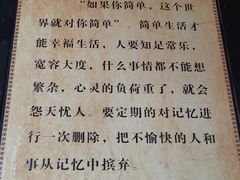 “如果你简单，这个世
界就对你简单”。简单生活才
能幸福生活，人要知足常乐，
宽容大度，什么事情都不能想
繁杂，心灵的负荷重了，就会
怨天忧人。要定期的对记忆进
行一次删除，把不愉快的人和
事从记忆中摈弃。